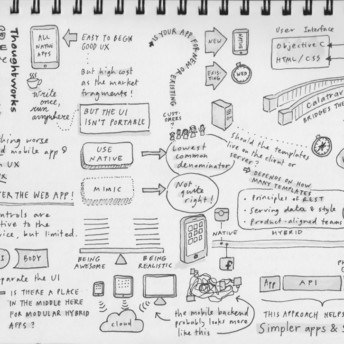 Thoughtworks
ALL
NATIVE
APPS
EASY TO BEGIN
GOOD UX
But high cost
as the market
fragments!
Write
once,
run
anywhere
BUT THE UI
ISN'T PORTABLE
IS YOUR APP FOR NEW OR EXISTING
CUSTOMERS?
NEW
EXISTING
WEB
User Interface
Objective C
HTML / CSS
Calatrava
BRIDGES
worse
mobile app?
UX
THE WEB APP!
USE
NATIVE
Lowest
common
denominator
MIMIC
Not
quite
right!
Should the templates
live on the client or
server?
DEPENDS ON HOW
MANY TEMPLATES
• Principles of REST
• Serving data & style
• Product-aligned teams
NATIVE
HYBRID
controls are
but limited.
BEING
AWESOME
BEING
REALISTIC
BODY
separate the UI
IS THERE A PLACE
IN THE MIDDLE HERE
FOR MODULAR HYBRID
APPS?
cloud
the mobile backend
probably looks more
like this
App
API
THIS APPROACH HELPS
Simpler apps &